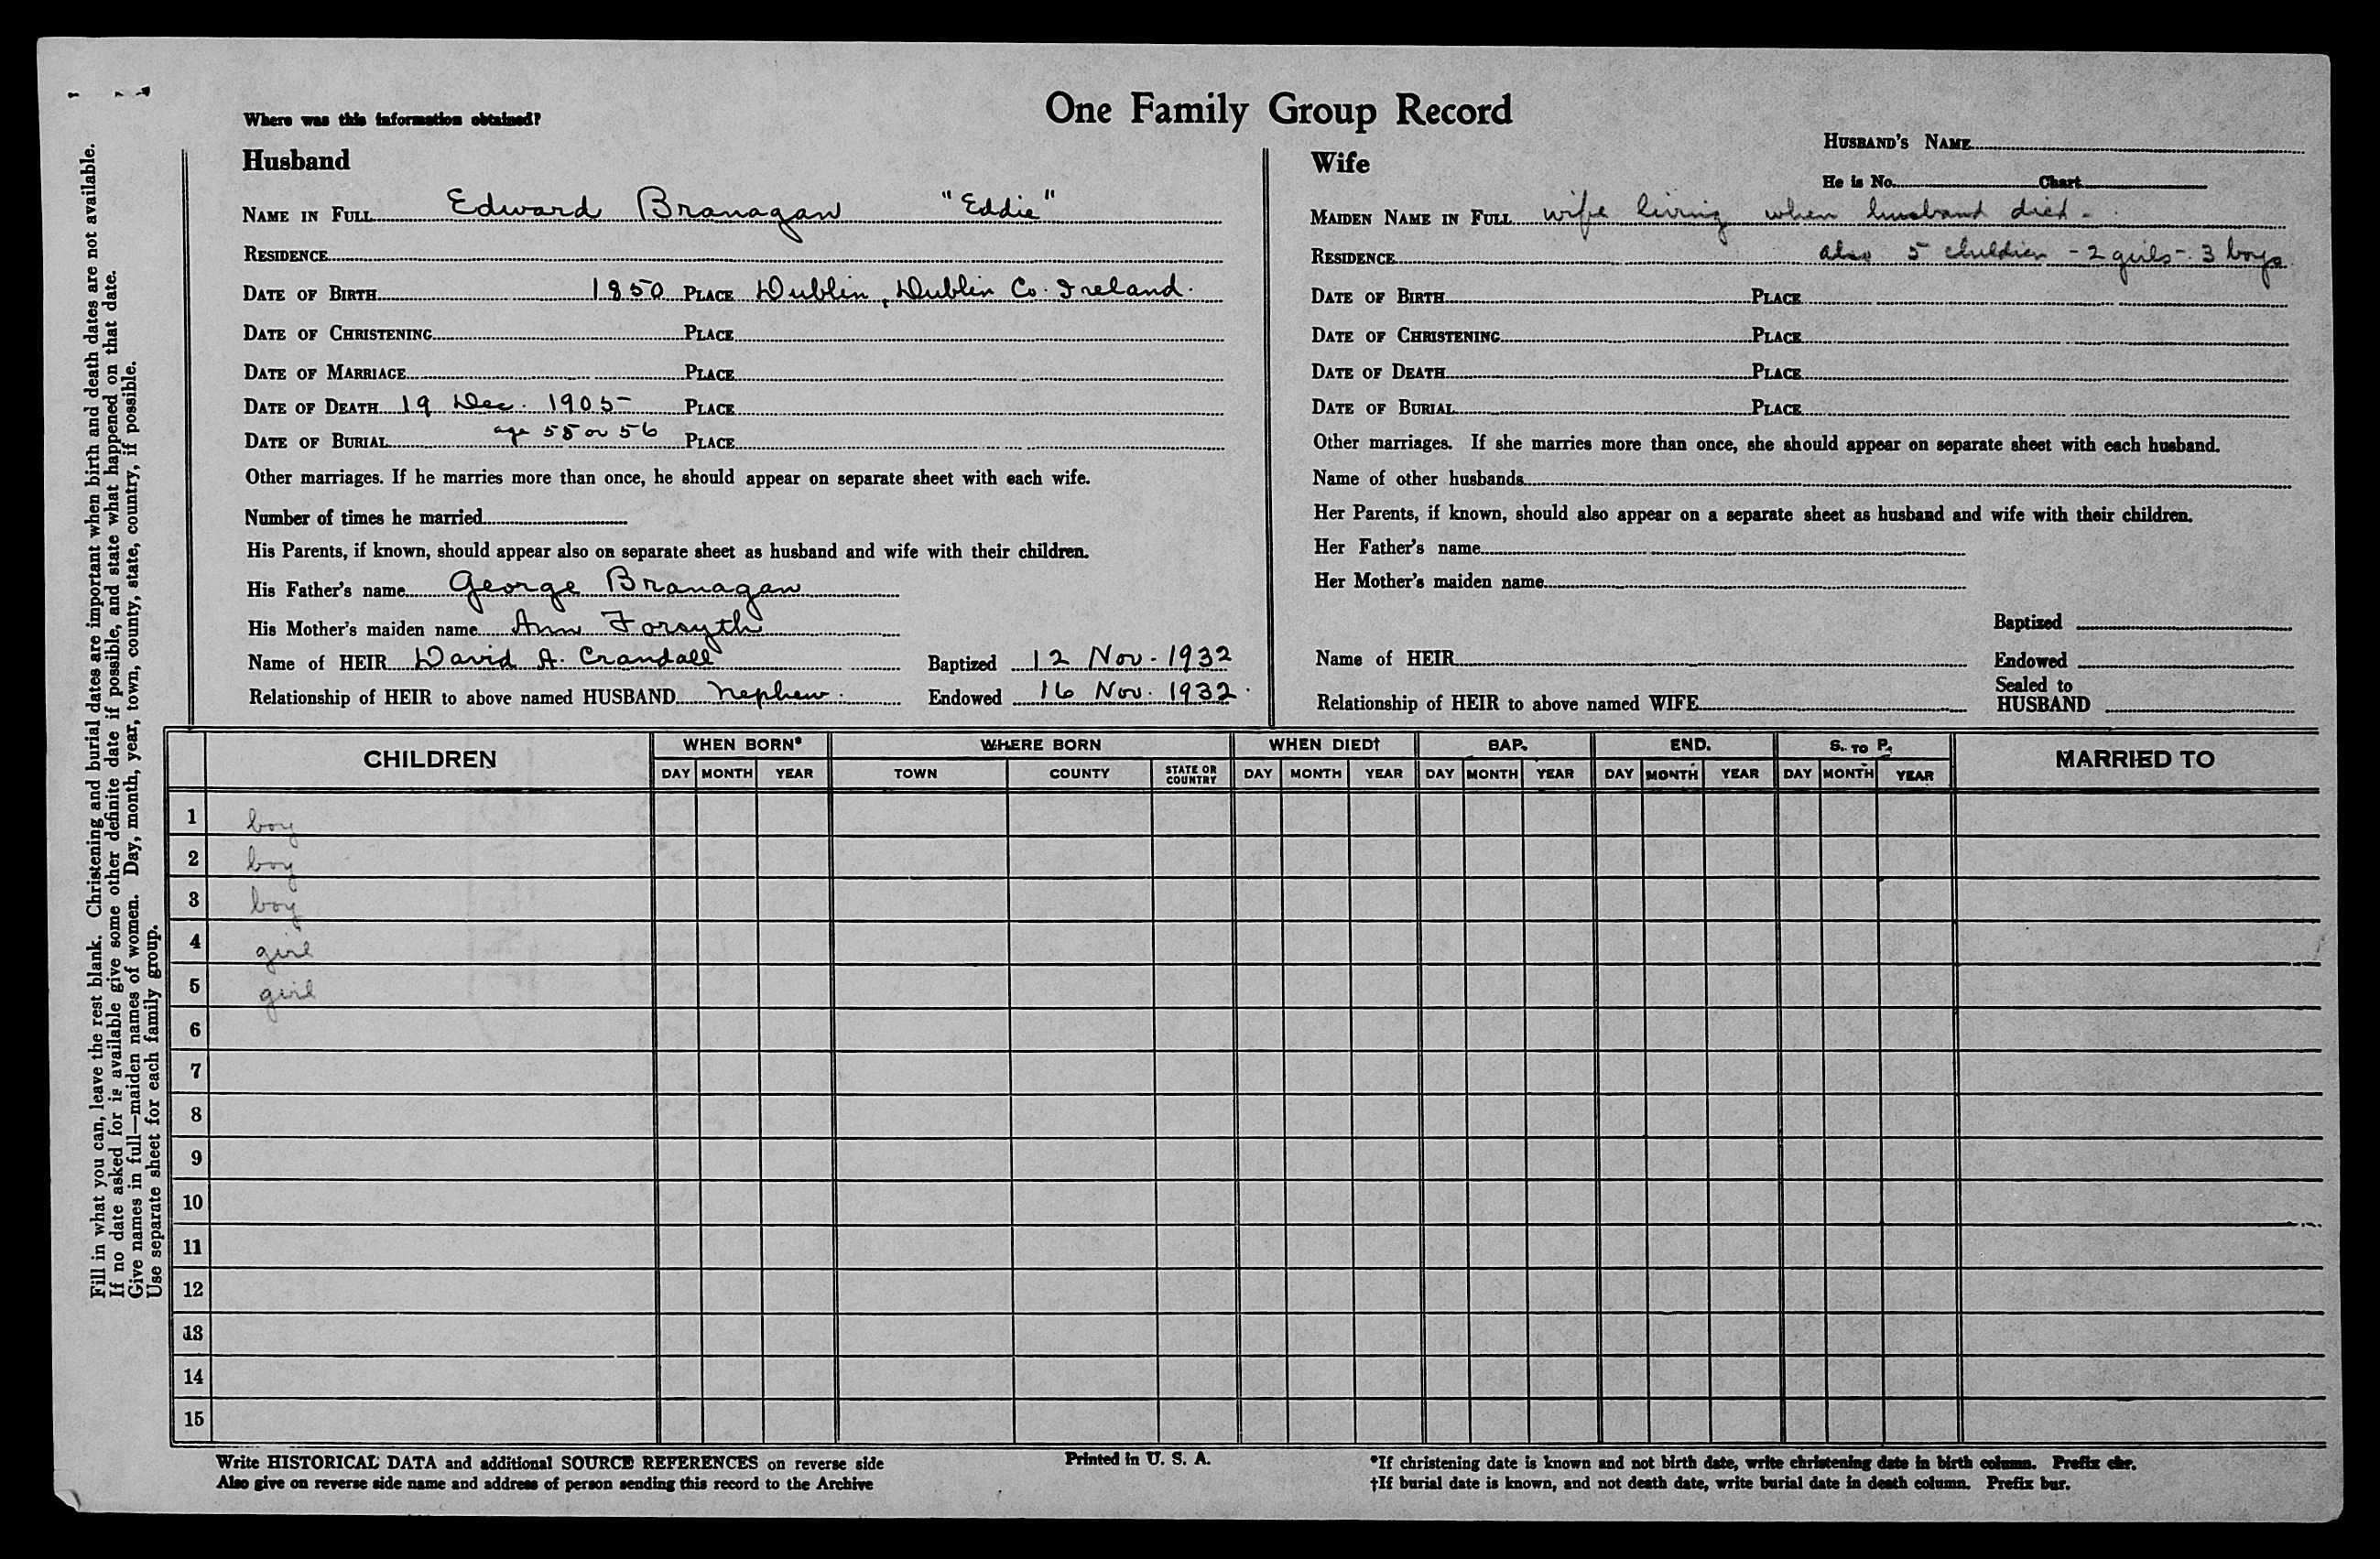 One Family Group Record
Where was this information obtained?
HUSBAND'S NAME
He is No. Chart
Husband
NAME IN FULL Edward Branagan "Eddie"
RESIDENCE
DATE OF BIRTH 1850 PLACE Dublin, Dublin Co. Ireland.
DATE OF CHRISTENING PLACE
DATE OF MARRIAGE PLACE
DATE OF DEATH 19 Dec. 1905 PLACE
age 55 or 56
DATE OF BURIAL PLACE
Other marriages. If he marries more than once, he should appear on separate sheet with each wife.
Number of times he married
His Parents, if known, should appear also on separate sheet as husband and wife with their children.
His Father's name George Branagan
His Mother's maiden name Ann Forsyth
Name of HEIR David A. Crandall Baptized 12 Nov. 1932
Relationship of HEIR to above named HUSBAND nephew. Endowed 16 Nov. 1932.
Wife
MAIDEN NAME IN FULL wife living when husband died.
RESIDENCE also 5 children - 2 girls - 3 boys
DATE OF BIRTH PLACE
DATE OF CHRISTENING PLACE
DATE OF DEATH PLACE
DATE OF BURIAL PLACE
Other marriages. If she marries more than once, she should appear on separate sheet with each husband.
Name of other husbands
Her Parents, if known, should also appear on a separate sheet as husband and wife with their children.
Her Father's name
Her Mother's maiden name
Baptized
Name of HEIR Endowed
Sealed to
Relationship of HEIR to above named WIFE HUSBAND
CHILDREN WHEN BORN* WHERE BORN WHEN DIED† BAP. END. S. TO P. MARRIED TO
DAY MONTH YEAR TOWN COUNTY STATE OR COUNTRY DAY MONTH YEAR DAY MONTH YEAR DAY MONTH YEAR DAY MONTH YEAR
1 boy
2 boy
3 boy
4 girl
5 girl
6
7
8
9
10
11
12
13
14
15
Write HISTORICAL DATA and additional SOURCE REFERENCES on reverse side
Also give on reverse side name and address of person sending this record to the Archive
Printed in U. S. A.
*If christening date is known and not birth date, write christening date in birth column. Prefix chr.
†If burial date is known, and not death date, write burial date in death column. Prefix bur.
Fill in what you can, leave the rest blank. Christening and burial dates are important when birth and death dates are not available.
If no date asked for is available give some other definite date if possible, and state what happened on that date.
Give names in full—maiden names of women. Day, month, year, town, county, state, country, if possible.
Use separate sheet for each family group.